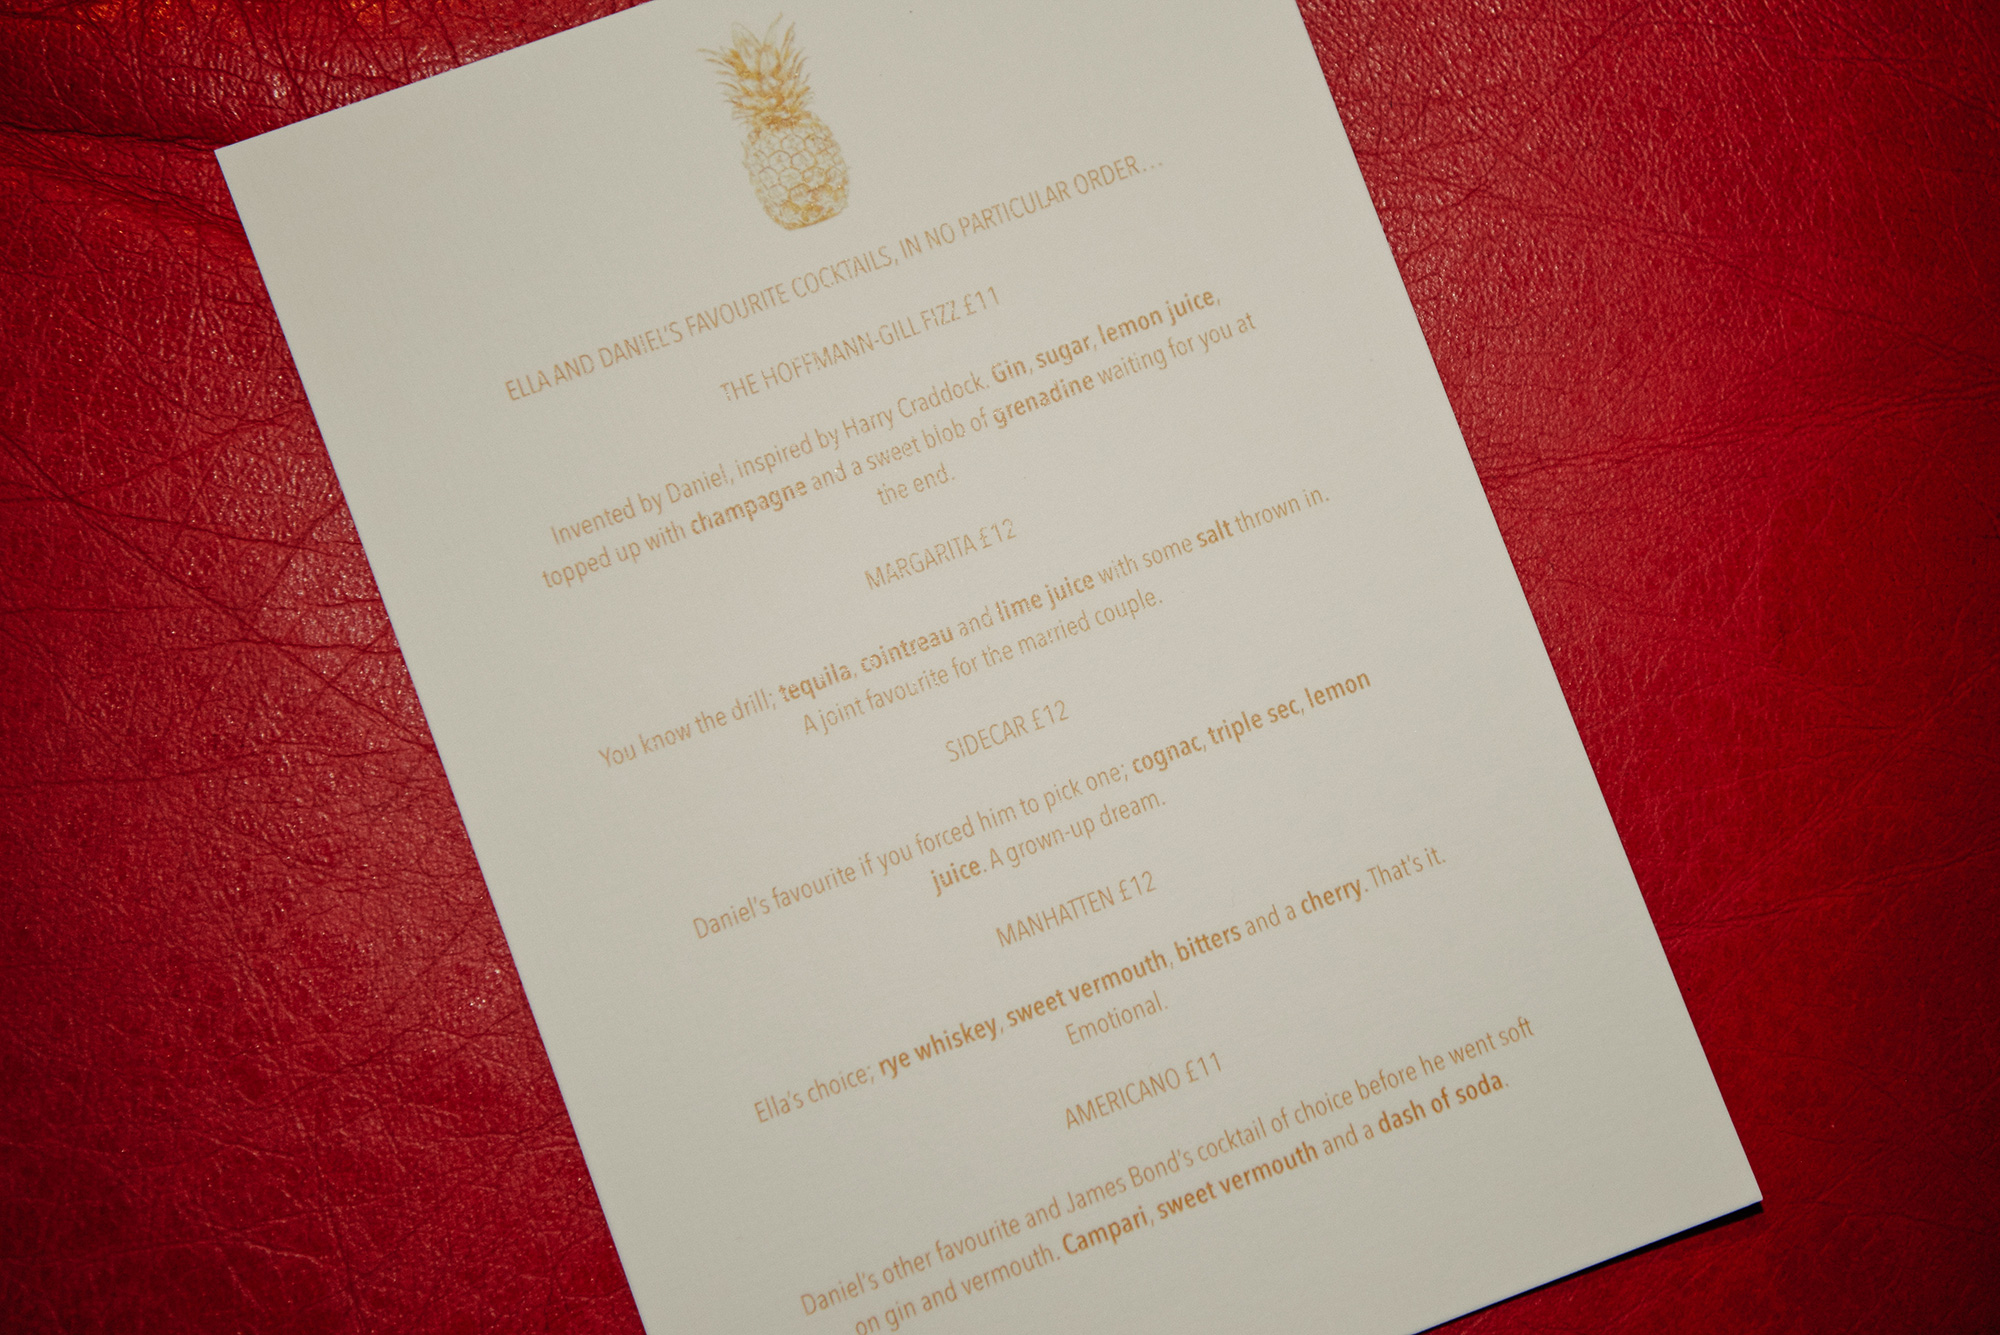 ELLA AND DANIEL'S FAVOURITE COCKTAILS, IN NO PARTICULAR ORDER…
THE HOFFMANN-GILL FIZZ £11
Invented by Daniel, inspired by Harry Craddock. Gin, sugar, lemon juice,
topped up with champagne and a sweet blob of grenadine waiting for you at
the end.
MARGARITA £12
You know the drill; tequila, cointreau and lime juice with some salt thrown in.
A joint favourite for the married couple.
SIDECAR £12
Daniel's favourite if you forced him to pick one; cognac, triple sec, lemon
juice. A grown-up dream.
MANHATTEN £12
Ella's choice; rye whiskey, sweet vermouth, bitters and a cherry. That's it.
Emotional.
AMERICANO £11
Daniel's other favourite and James Bond's cocktail of choice before he went soft
on gin and vermouth. Campari, sweet vermouth and a dash of soda.